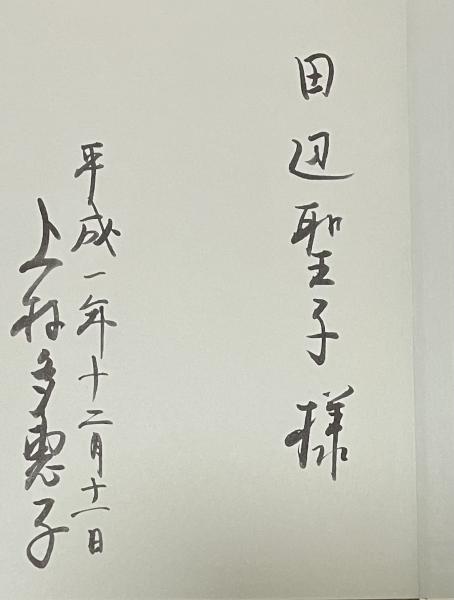 田辺聖子様
平成一年十二月十一日
上村多恵子